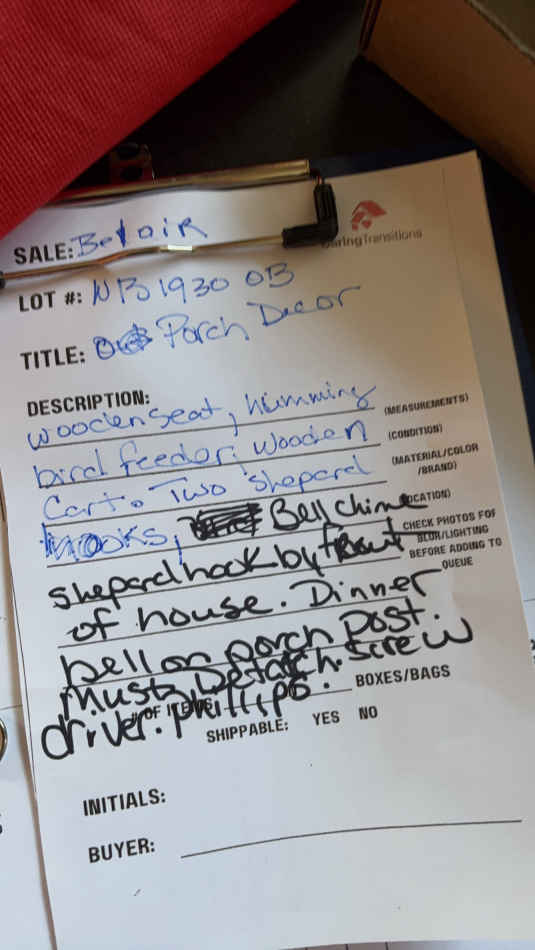 SALE: Belair
CaringTransitions
LOT #: NB 1930 OB
TITLE: Porch Decor
DESCRIPTION:
wooden seat, humming
(MEASUREMENTS)
bird feeder, wooden
(CONDITION)
Cart. Two Shepard
(MATERIAL/COLOR
/BRAND)
hooks, Bell chime
LOCATION)
shepard hook by front
CHECK PHOTOS FOR
BLUR/LIGHTING
BEFORE ADDING TO
QUEUE
of house. Dinner
bell on porch post.
must Detatch. screw
driver. phillips.
# OF ITEMS
BOXES/BAGS
SHIPPABLE: YES NO
INITIALS:
BUYER: